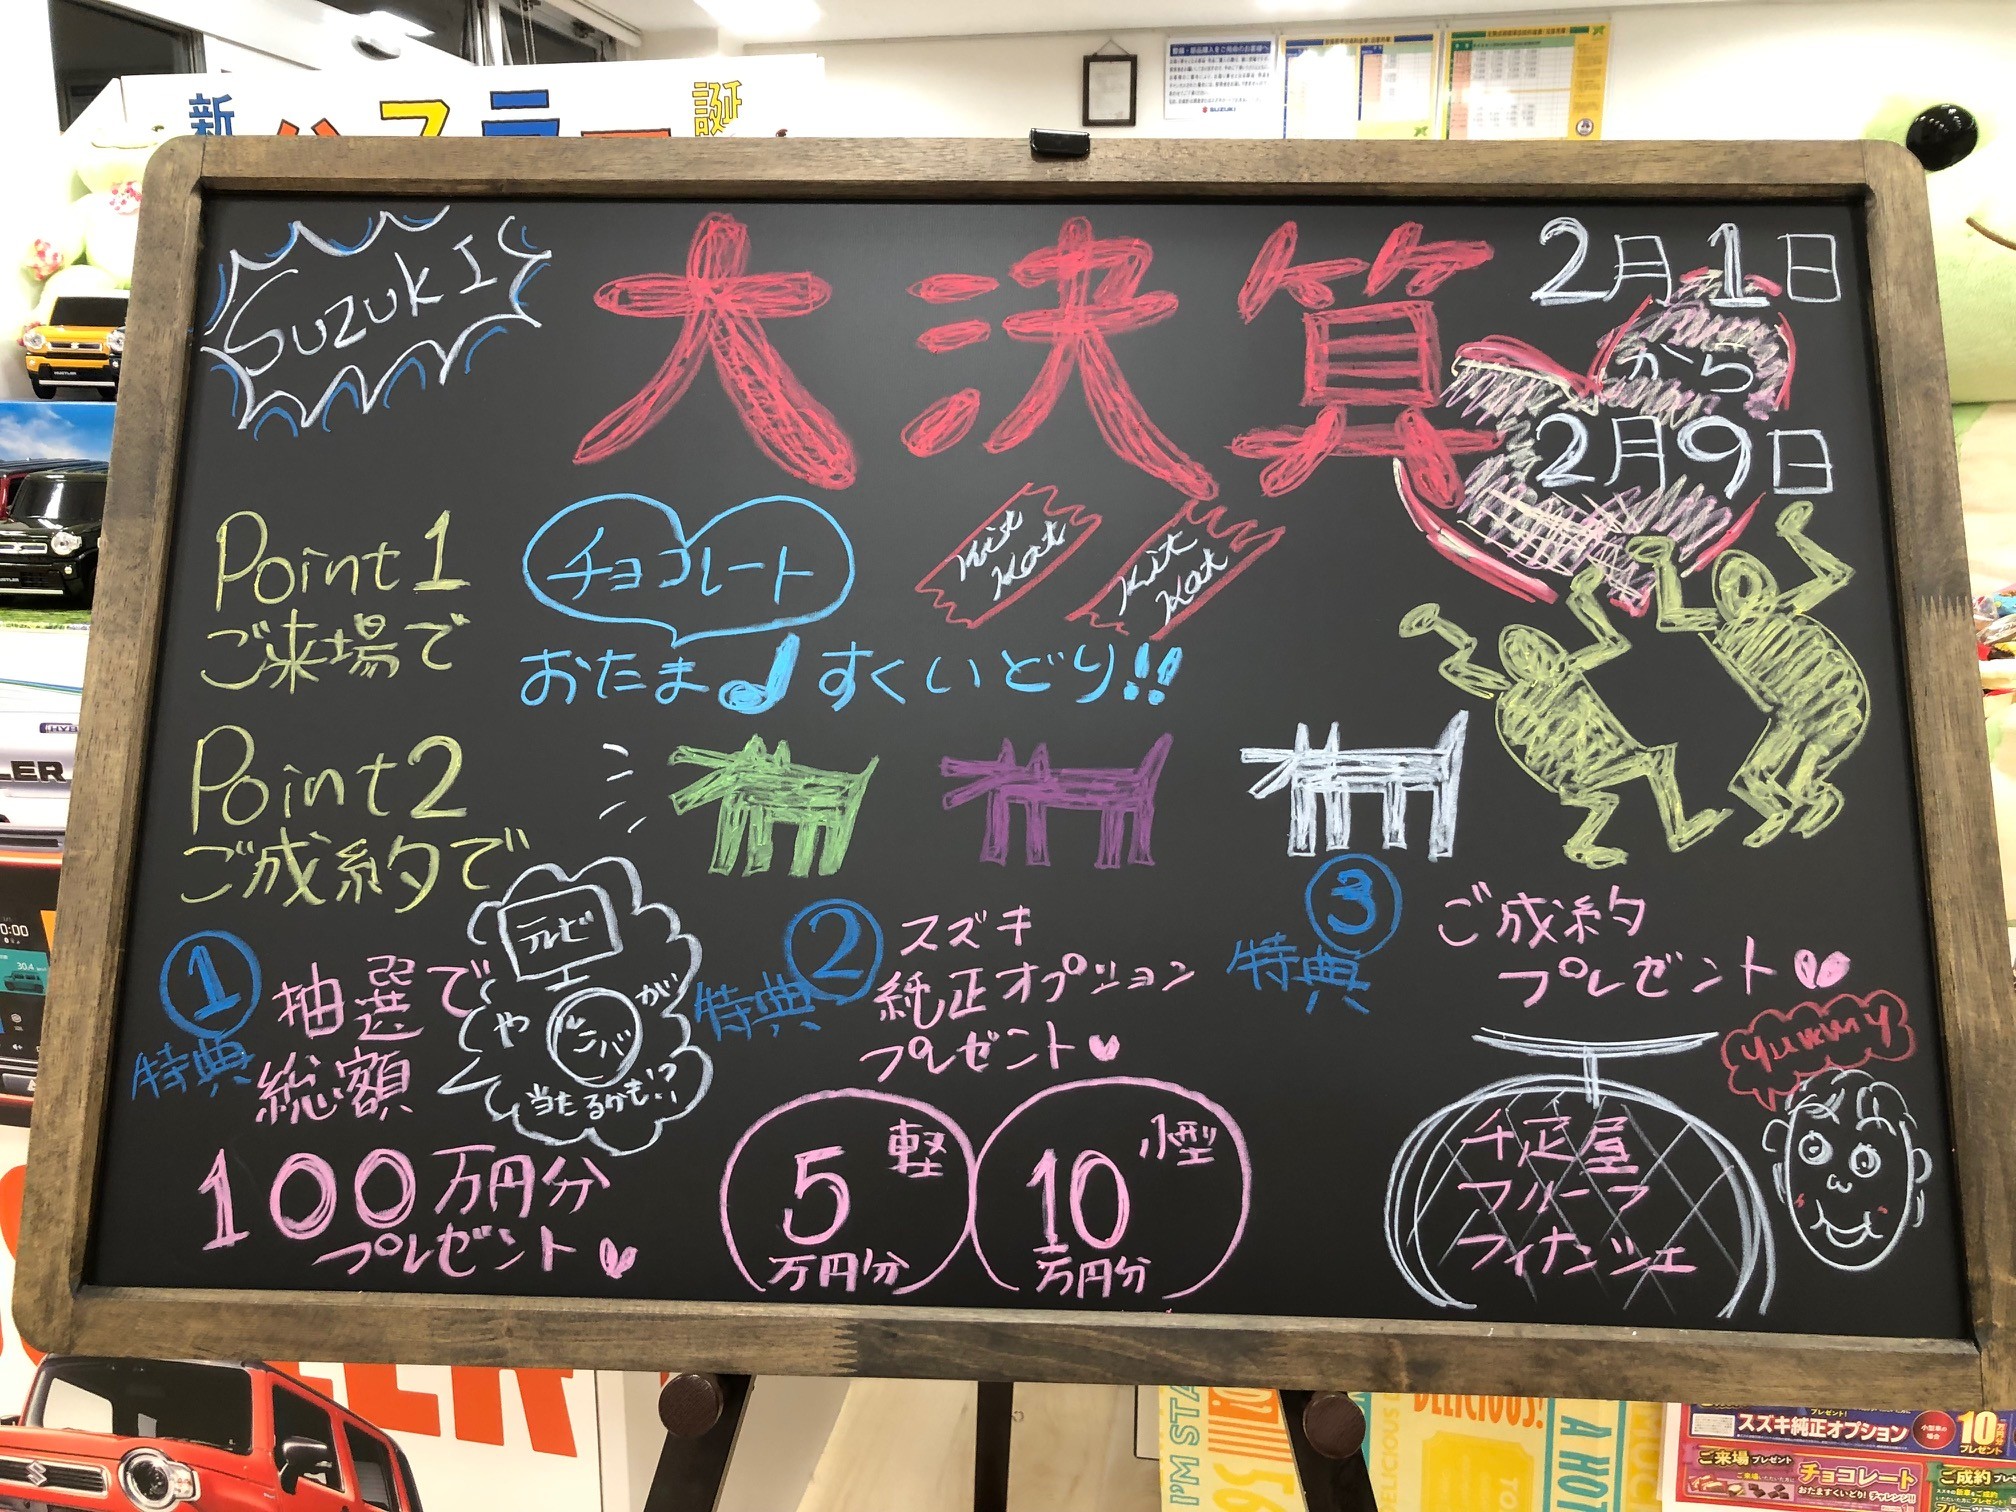 新ハスラー誕
SUZUKI
SUZUKI
大決算
2月1日
から
2月9日
Point1
ご来場で
チョコレート
Kit Kat
Kit Kat
おたま すくいどり!!
Point2
ご成約で
1
特典
抽選で
総額
100万円分
プレゼント
テレビ
や
ルンバ
が
当たるかも!?
2
特典
スズキ
純正オプション
プレゼント
5
軽
万円分
10
小型
万円分
3
特典
ご成約
プレゼント
千疋屋
フルーフ
フィナンシェ
yummy
HUSTLER
LER
I'M STA
DELICIOUS!
A HOT
プレゼント!
スズキ純正オプション
小型車の場合
10万円分
プレゼント
ご来場プレゼント
チョコレート
おたますくいどり!チャレンジ!!
ご成約プレ